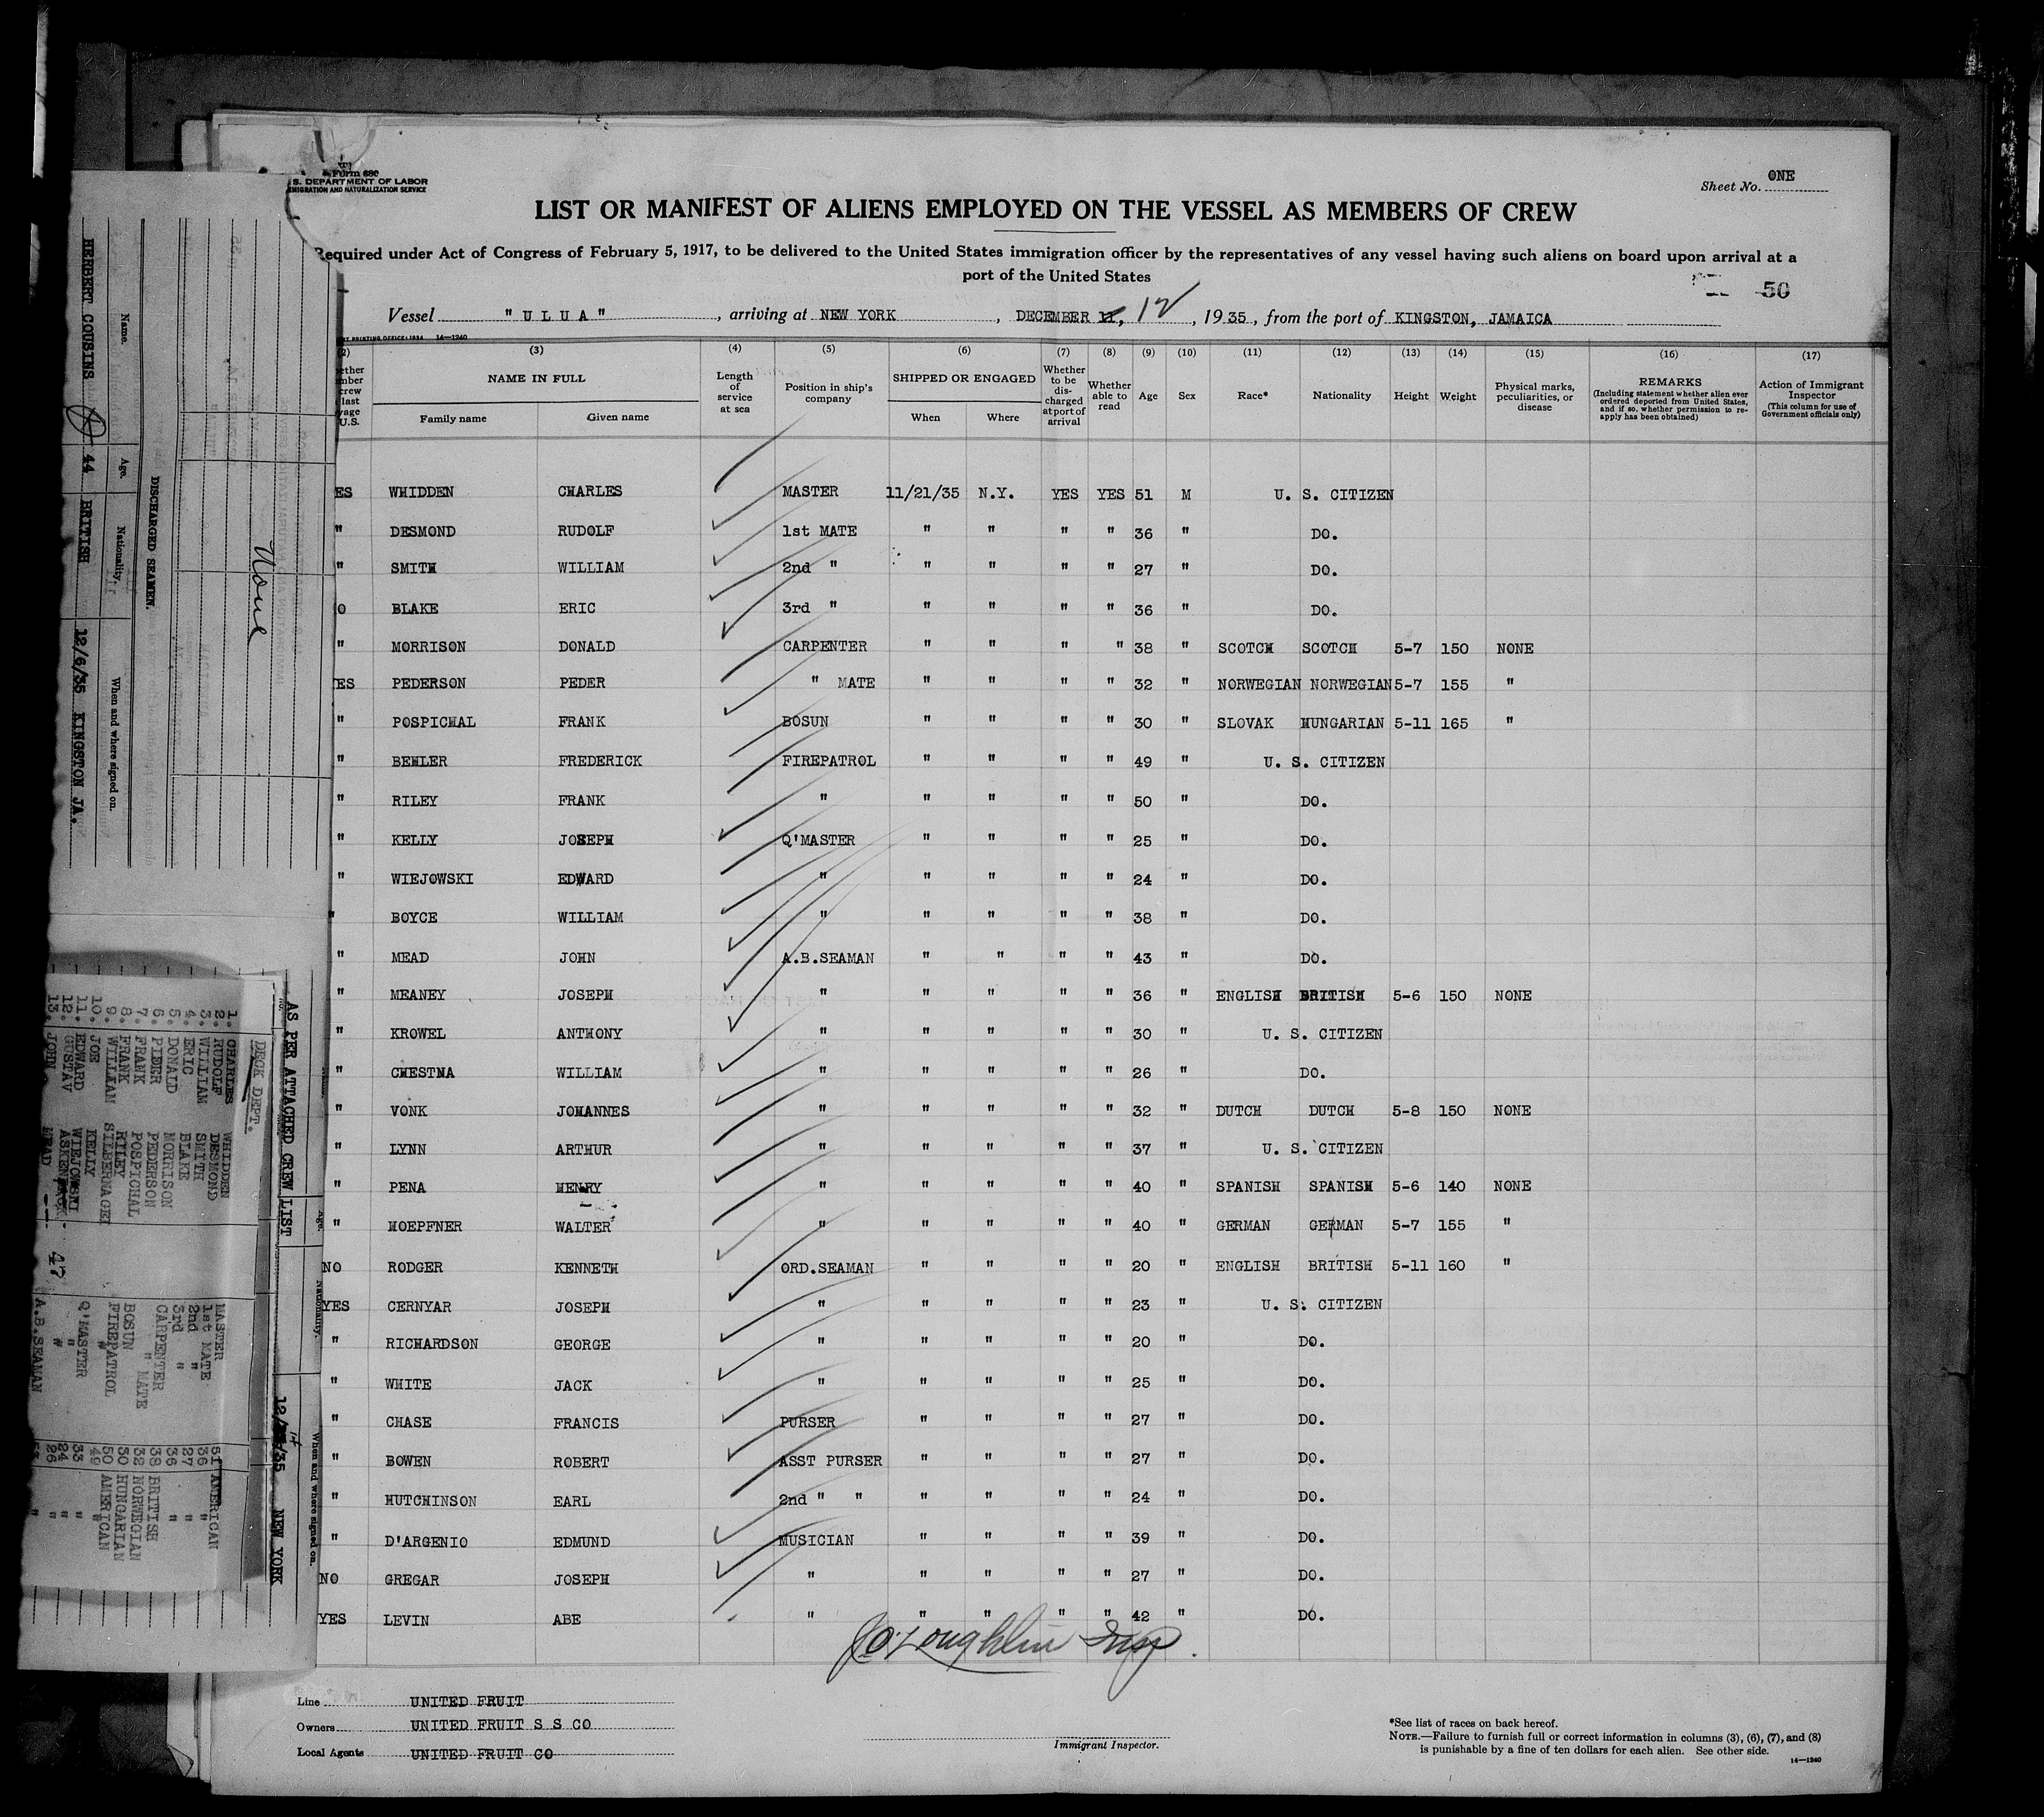 Form 680
S. DEPARTMENT OF LABOR
IMMIGRATION AND NATURALIZATION SERVICE
Sheet No. ONE
LIST OR MANIFEST OF ALIENS EMPLOYED ON THE VESSEL AS MEMBERS OF CREW
Required under Act of Congress of February 5, 1917, to be delivered to the United States immigration officer by the representatives of any vessel having such aliens on board upon arrival at a
port of the United States
50
Vessel "ULUA", arriving at NEW YORK, DECEMBER 11, 12, 1935, from the port of KINGSTON, JAMAICA
PRINTING OFFICE: 1934 14—1240
(2) (3) (4) (5) (6) (7) (8) (9) (10) (11) (12) (13) (14) (15) (16) (17)
NAME IN FULL Family name Given name Length of service at sea Position in ship's company SHIPPED OR ENGAGED When Where Whether to be discharged at port of arrival Whether able to read Age Sex Race* Nationality Height Weight Physical marks, peculiarities, or disease REMARKS (Including statement whether alien ever ordered deported from United States, and if so, whether permission to re-apply has been obtained) Action of Immigrant Inspector (This column for use of Government officials only)
ES WHIDDEN CHARLES MASTER 11/21/35 N.Y. YES YES 51 M U. S. CITIZEN
" DESMOND RUDOLF 1st MATE " " " " 36 " DO.
" SMITH WILLIAM 2nd " " " " " 27 " DO.
O BLAKE ERIC 3rd " " " " " 36 " DO.
" MORRISON DONALD CARPENTER " " " " 38 " SCOTCH SCOTCH 5-7 150 NONE
YES PEDERSON PEDER " MATE " " " " 32 " NORWEGIAN NORWEGIAN 5-7 155 "
" POSPICHAL FRANK BOSUN " " " " 30 " SLOVAK HUNGARIAN 5-11 165 "
" BEHLER FREDERICK FIREPATROL " " " " 49 " U. S. CITIZEN
" RILEY FRANK " " " " " 50 " DO.
" KELLY JOSEPH Q'MASTER " " " " 25 " DO.
" WIEJOWSKI EDWARD " " " " " 24 " DO.
" BOYCE WILLIAM " " " " " 38 " DO.
" MEAD JOHN A.B.SEAMAN " " " " 43 " DO.
" MEANEY JOSEPH " " " " " 36 " ENGLISH BRITISH 5-6 150 NONE
" KROWEL ANTHONY " " " " " 30 " U. S. CITIZEN
" CHESTNA WILLIAM " " " " " 26 " DO.
" VONK JOHANNES " " " " " 32 " DUTCH DUTCH 5-8 150 NONE
" LYNN ARTHUR " " " " " 37 " U. S. CITIZEN
" PENA HENRY " " " " " 40 " SPANISH SPANISH 5-6 140 NONE
" HOEPFNER WALTER " " " " " 40 " GERMAN GERMAN 5-7 155 "
NO RODGER KENNETH ORD.SEAMAN " " " " 20 " ENGLISH BRITISH 5-11 160 "
YES CERNYAR JOSEPH " " " " " 23 " U. S. CITIZEN
" RICHARDSON GEORGE " " " " " 20 " DO.
" WHITE JACK " " " " " 25 " DO.
" CHASE FRANCIS PURSER " " " " 27 " DO.
" BOWEN ROBERT ASST PURSER " " " " 27 " DO.
" HUTCHINSON EARL 2nd " " " " " " 24 " DO.
" D'ARGENIO EDMUND MUSICIAN " " " " 39 " DO.
NO GREGAR JOSEPH " " " " " 27 " DO.
YES LEVIN ABE " " " " " 42 " DO.
J O'Loughlin Insp.
Line UNITED FRUIT
Owners UNITED FRUIT S S CO
Local Agents UNITED FRUIT CO
Immigrant Inspector.
*See list of races on back hereof.
NOTE.—Failure to furnish full or correct information in columns (3), (6), (7), and (8)
is punishable by a fine of ten dollars for each alien. See other side.
14—1240
None
DISCHARGED SEAMEN.
Name. Age. Nationality. When and where signed on.
HERBERT COUSINS 44 BRITISH 12/6/35 KINGSTON JA.
AS PER ATTACHED CREW LIST 12/ /35 NEW YORK
Age. Nationality. When and where signed on.
DECK DEPT.
1. CHARLES WHIDDEN MASTER 51 AMERICAN
2. RUDOLF DESMOND 1st MATE 36 "
3. WILLIAM SMITH 2nd " 27 "
4. ERIC BLAKE 3rd " 36 "
5. DONALD MORRISON CARPENTER 38 BRITISH
6. PIEER PEDERSON " MATE 32 NORWEGIAN
7. FRANK POSPICHAL BOSUN 30 HUNGARIAN
8. FRANK RILEY FIREPATROL 50 AMERICAN
9. WILLIAM SILBERNAGEL " 49 "
10. JOE KELLY Q'MASTER 33 "
11. EDWARD WIEJOWSKI " 24 "
12. GUSTAV " 26 "
13. JOHN MEAD 47 A.B.SEAMAN